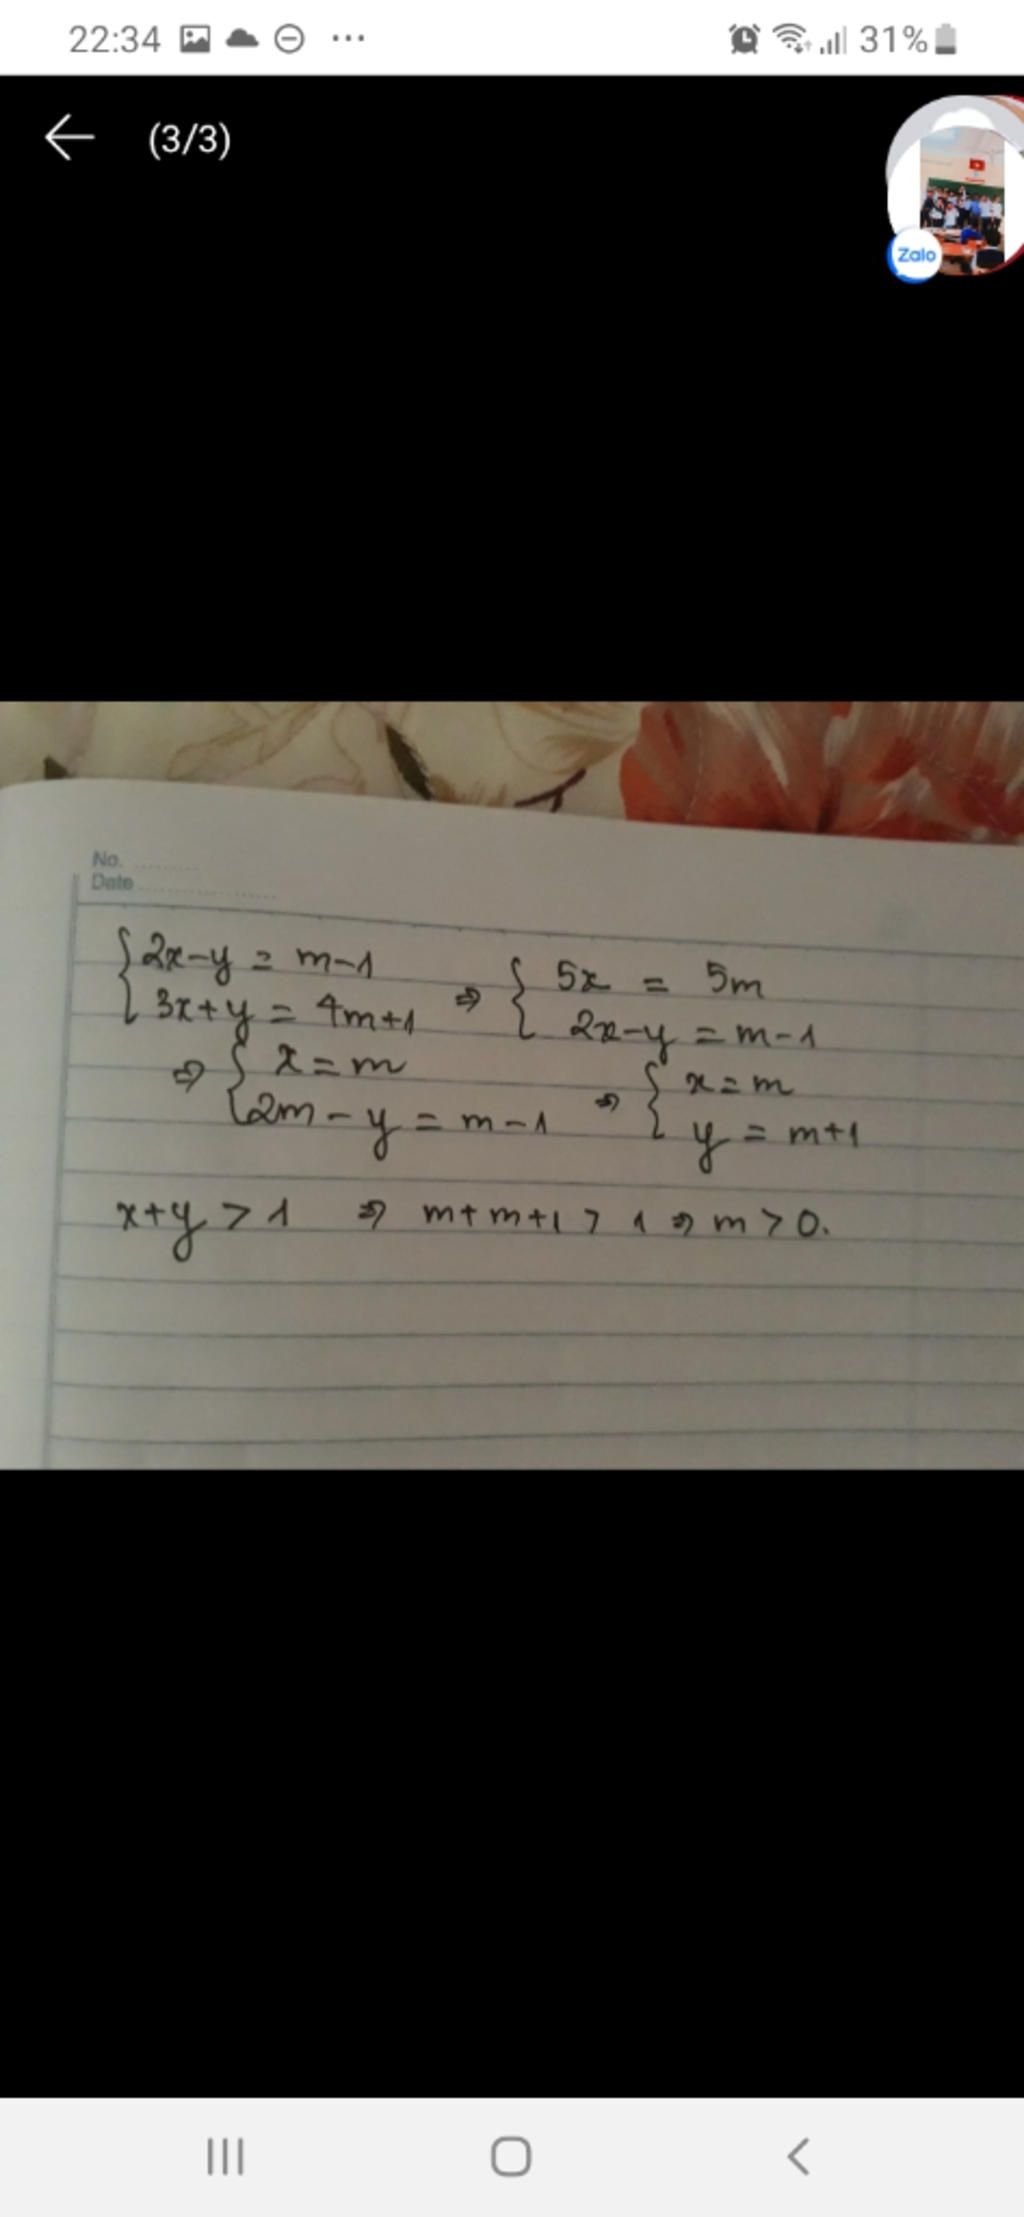 22:34 ... 31%
(3/3)
Zalo
No.
Date
{2x-y = m-1
{3x+y = 4m+1 ⇒ {5x = 5m
{2x-y = m-1
⇒ {x=m
{2m-y = m-1 ⇒ {x=m
{y = m+1
x+y > 1 ⇒ m+m+1 > 1 ⇒ m > 0.